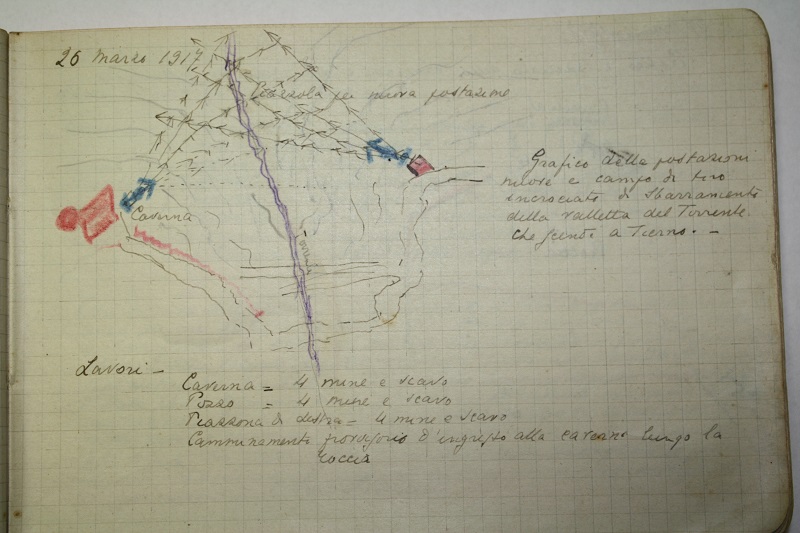 26 Marzo 1917
Piazzola per nuova postazione
Grafico delle postazioni
nuove e campo di tiro
incrociato di sbarramento
della valletta del Torrente
che scende a Tierno. —
Caverna
Lavori —
Caverna = 4 mine e scavo
Pozzo = 4 mine e scavo
Piazzona di destra = 4 mine e scavo
Camminamento provvisorio d'ingresso alla caverna lungo la
roccia